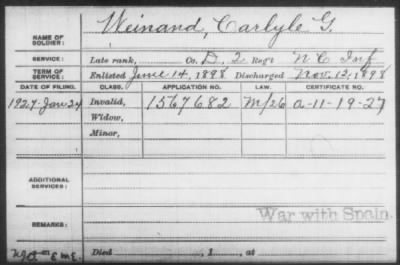 NAME OF SOLDIER: Weinand, Carlyle G.
SERVICE: Late rank, Co. D, 2 Reg't N C Inf
TERM OF SERVICE: Enlisted June 14, 1898 Discharged Nov. 12, 1898
DATE OF FILING. CLASS. APPLICATION NO. LAW. CERTIFICATE NO.
1927-Jan 24 Invalid, 1567682 a-11-19-27
Widow,
Minor,
ADDITIONAL SERVICES:
War with Spain.
REMARKS:
Died , 1 , at